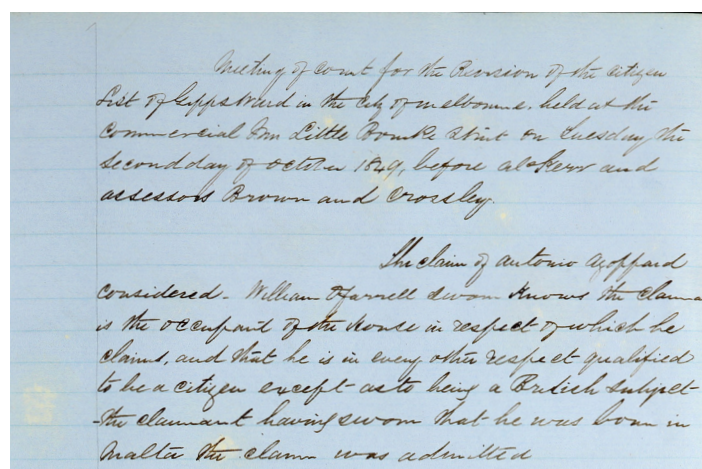 Meeting of Court for the Revision of the Citizen
List of Gipps Ward in the City of Melbourne, held at the
Commercial Inn Little Bourke Street on Tuesday the
Second day of October 1849, before al Kerr and
assessors Brown and Crossley.
The claim of Antonio
considered - William O'Farrell sworn Knows the claima
is the occupant of the House in respect of which he
claims, and that he is in every other respect qualified
to be a citizen except as to being a British Subject
- the claimant having sworn that he was born in
Malta the claim was admitted